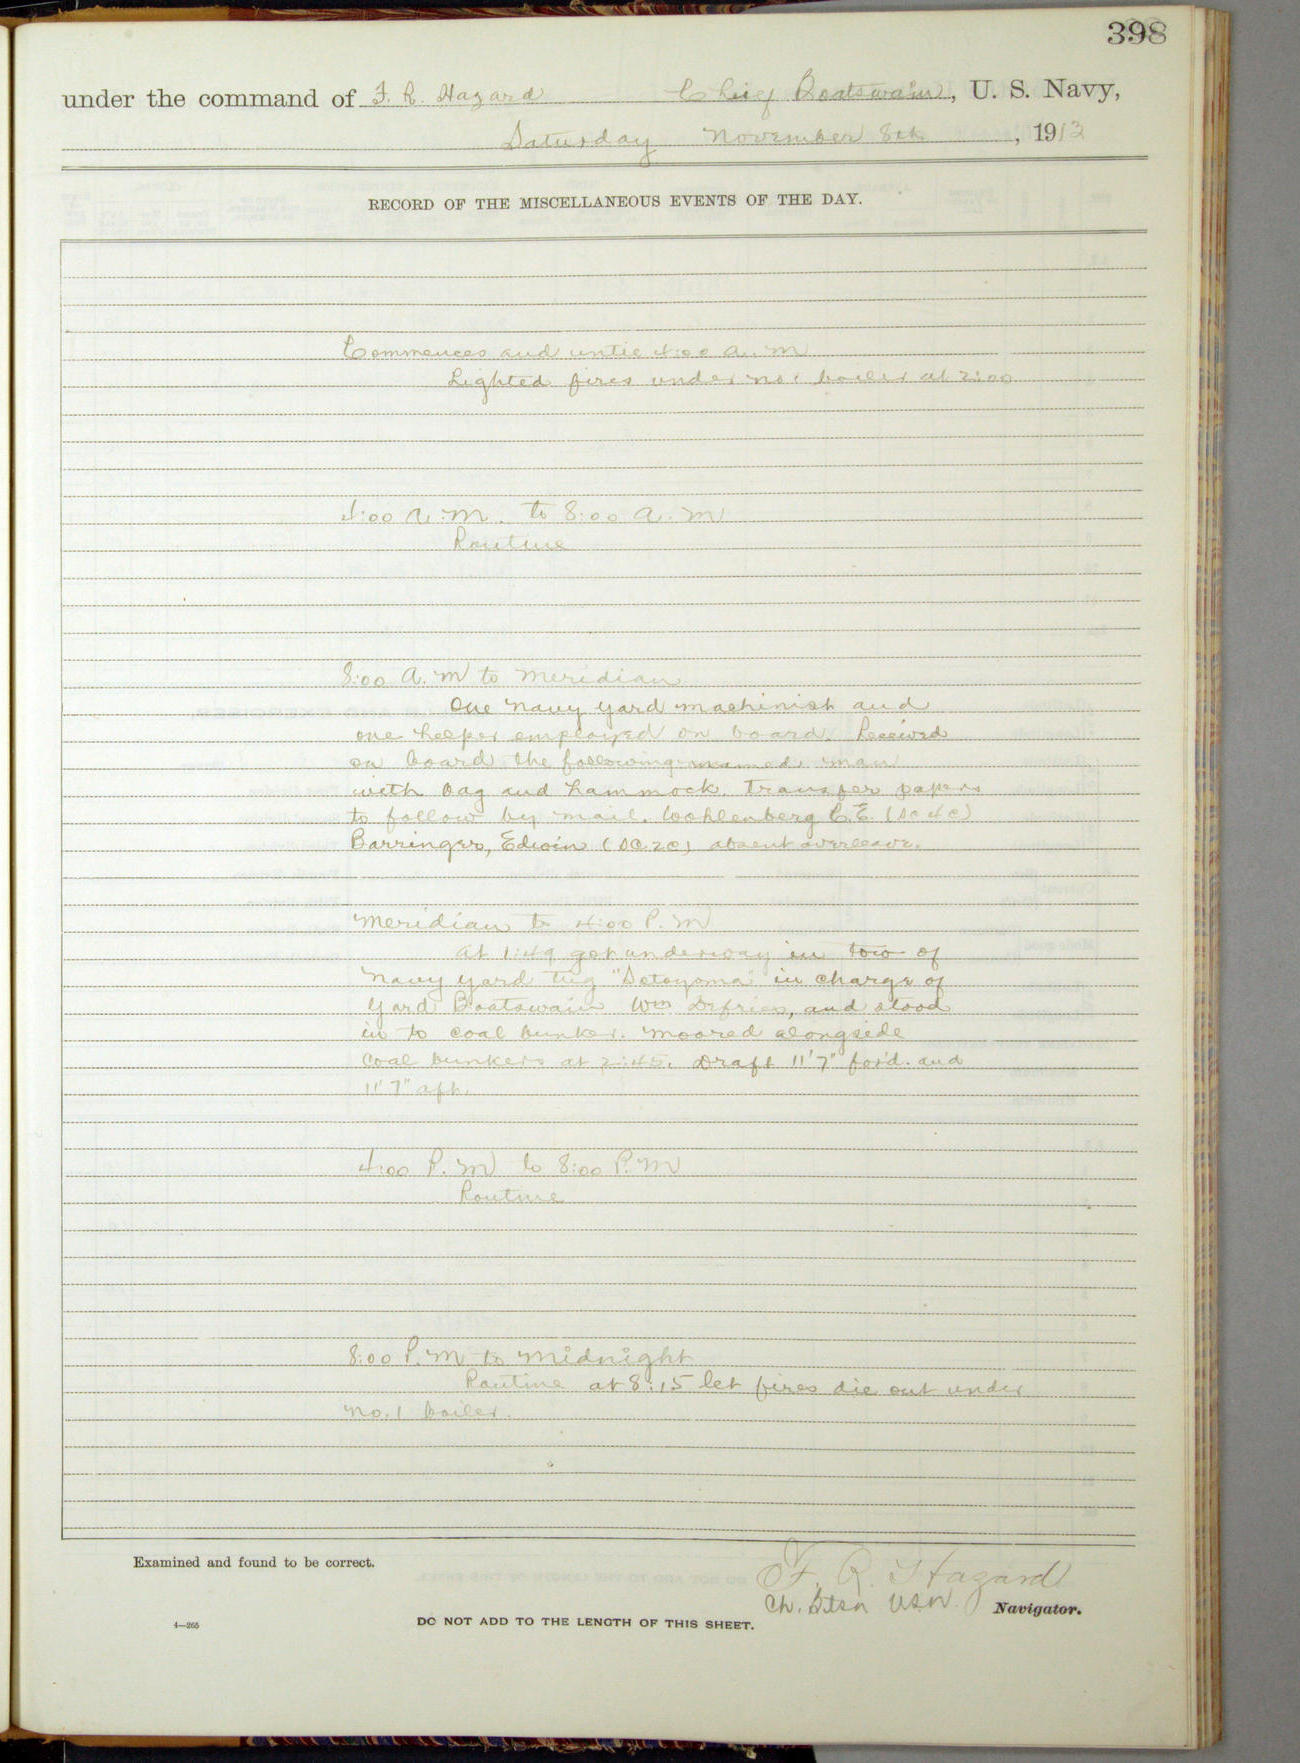 398
under the command of F. R. Hazard Chief Boatswain, U. S. Navy,
Saturday November 8th, 1913
RECORD OF THE MISCELLANEOUS EVENTS OF THE DAY.
Commences and until 4:00 a. m
Lighted fires under no 1 boiler at 2:00
4:00 a. m. to 8:00 a. m
Routine
8:00 a. m to meridian
One navy yard machinist and
one helper employed on board. Received
on board the following named man
with bag and hammock. transfer papers
to follow by mail. Wohlenberg C. E. (SC 4 C)
Barringer, Edwin (SC. 2 C) absent overleave.
Meridian to 4:00 P. M
at 1:49 got underway in tow of
navy yard tug "Sotoyomo" in charge of
yard Boatswain Wm. Defries, and stood
in to coal bunker. Moored alongside
coal bunkers at 2:45. Draft 11'7" for'd. and
11'7" aft.
4:00 P. M to 8:00 P. M
Routine
8:00 P. M to Midnight
Routine at 8:15 let fires die out under
no. 1 boiler.
Examined and found to be correct.
F. R. Hazard
Ch. Btsn U.S.N. Navigator.
4—265
DO NOT ADD TO THE LENGTH OF THIS SHEET.